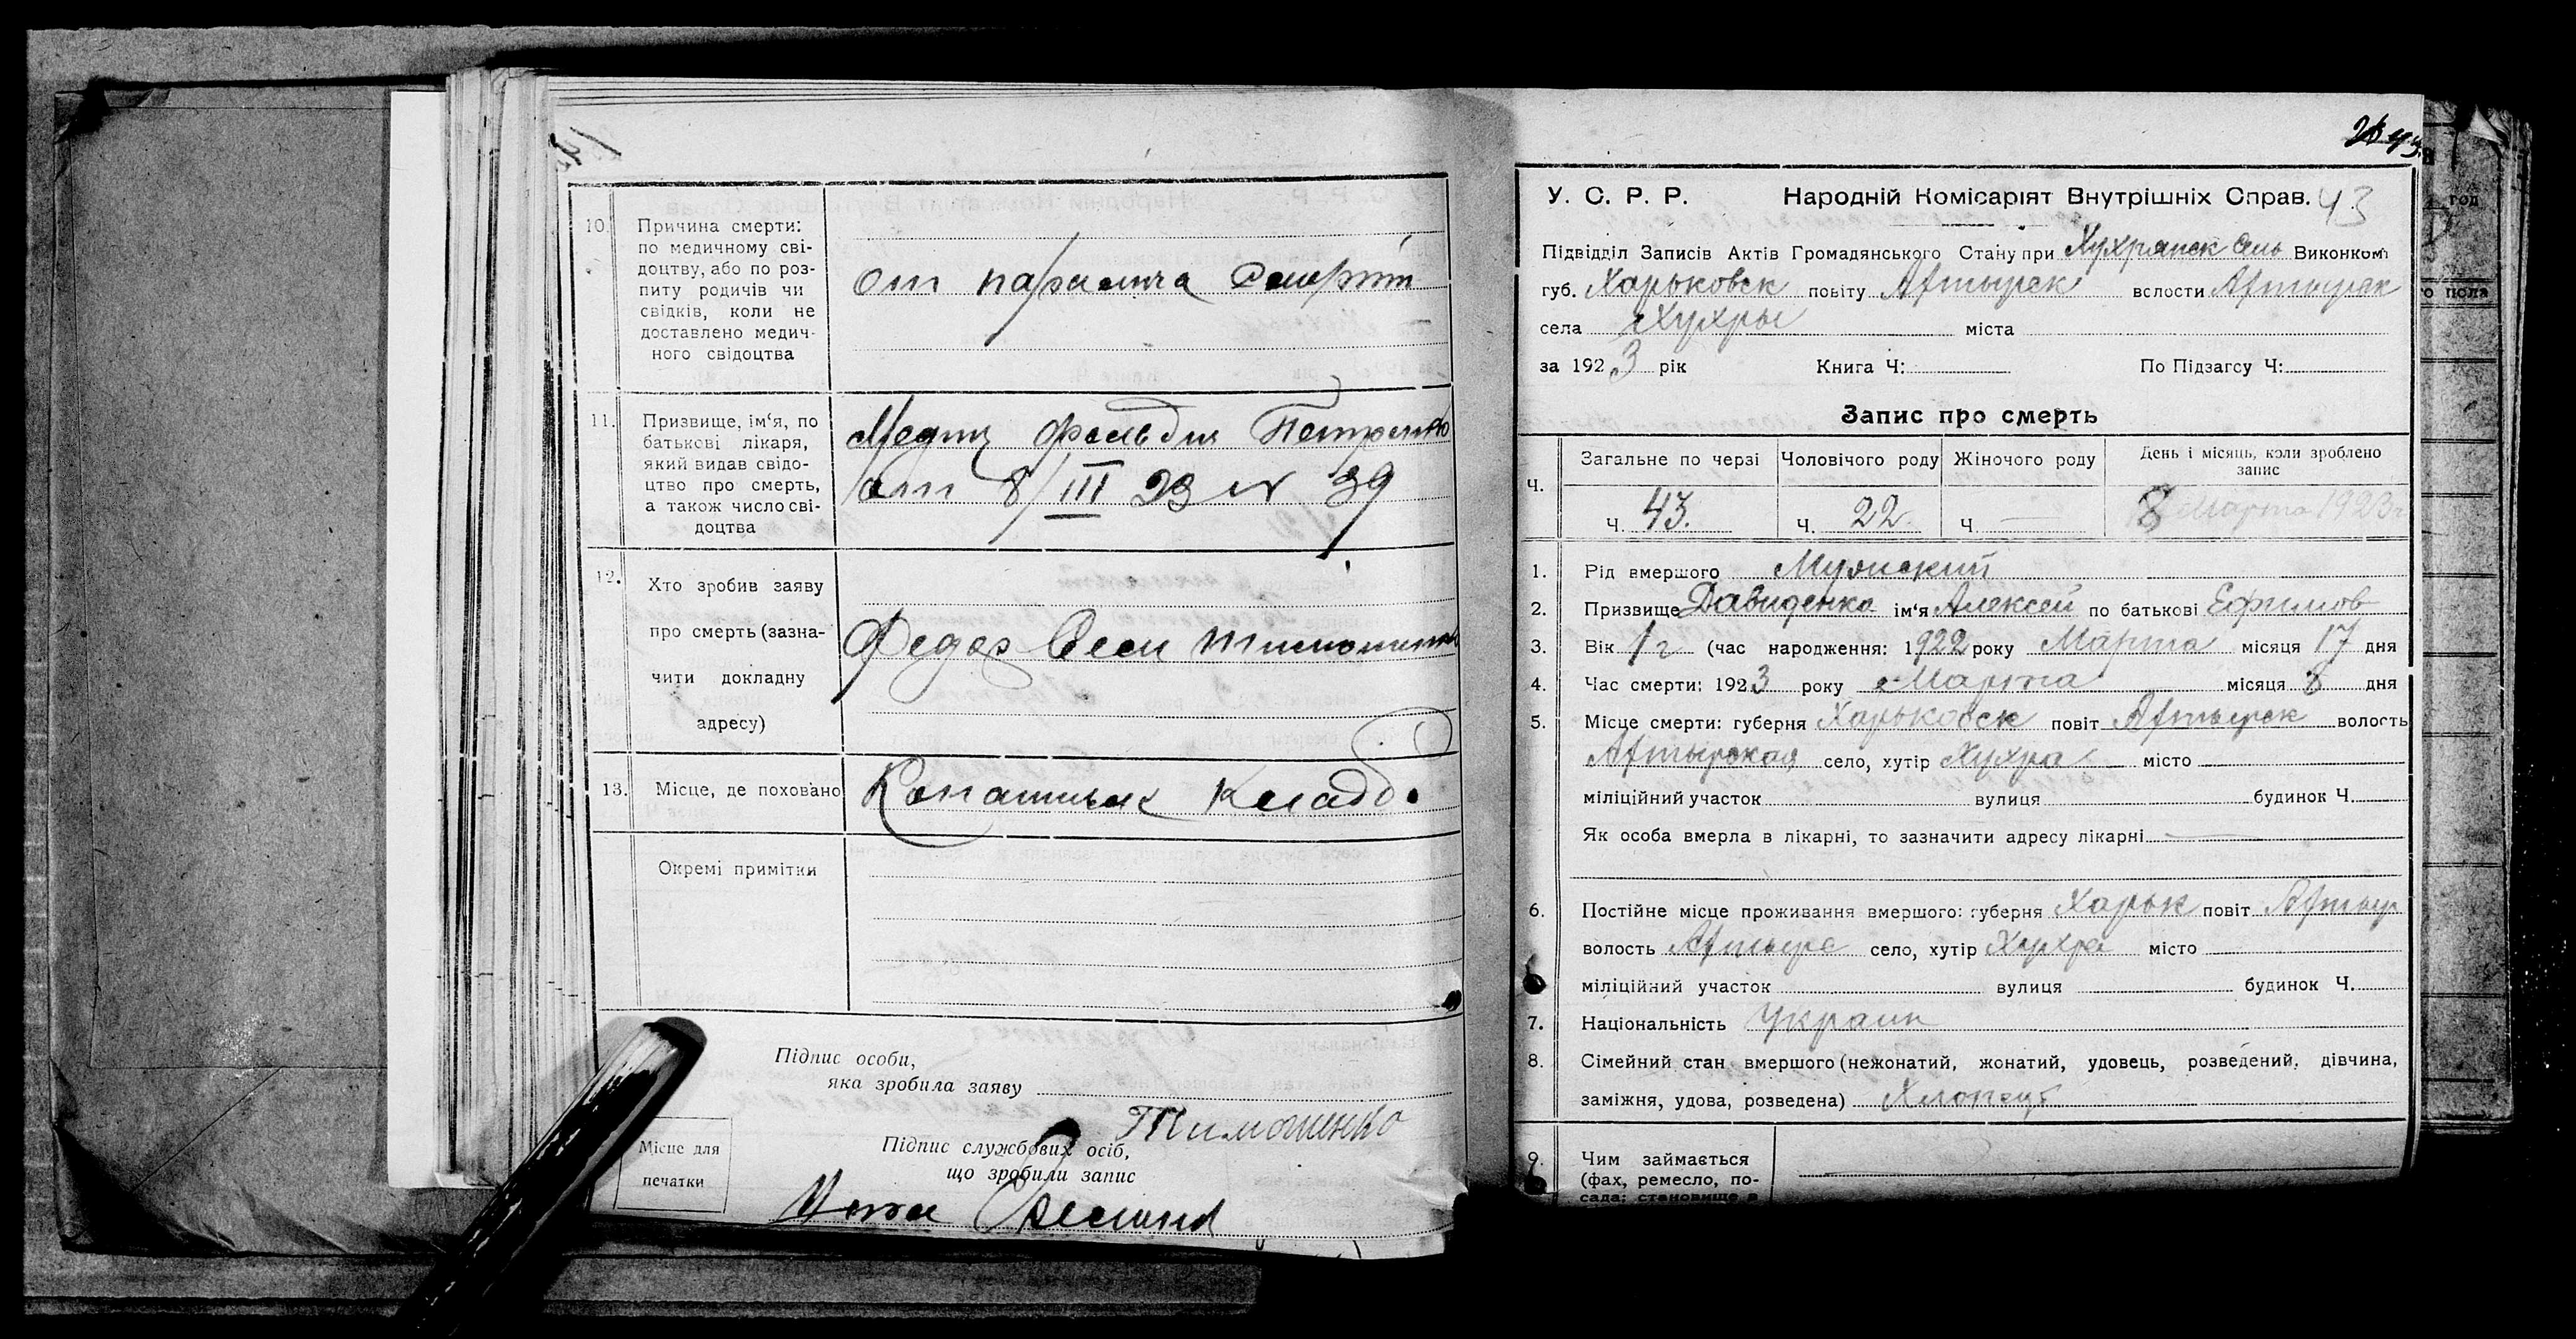 10. Причина смерти:
по медичному сві-
доцтву, або по роз-
питу родичів чи
свідків, коли не
доставлено медич-
ного свідоцтва
от паралича
11. Призвище, ім'я, по
батькові лікаря,
який видав свідо-
цтво про смерть,
а також число сві-
доцтва
от 8/III 23 N 39
12. Хто зробив заяву
про смерть (зазна-
чити докладну
адресу)
Федор
13. Місце, де поховано
Кладб.
Окремі примітки
Підпис особи,
яка зробила заяву
Тимошенко
Місце для
печатки
Підпис службових осіб,
що зробили запис
43
У. С. Р. Р. Народній Комісаріят Внутрішніх Справ. 43
Підвідділ Записів Актів Громадянського Стану при Хухрянск Виконком
губ. Харьковск повіту Ахтырск волости Ахтырск
села Хухры міста
за 1923 рік Книга Ч: По Підзагсу Ч:
Запис про смерть
Ч. Загальне по черзі Чоловічого роду Жіночого роду День і місяць, коли зроблено
запис
Ч. 43. Ч. 22. Ч — 8 Марта 1923 г
1. Рід вмершого Мужский
2. Призвище Давиденко ім'я Алексей по батькові Ефимов
3. Вік 1 г (час народження: 1922 року Марта місяця 17 дня
4. Час смерти: 1923 року Марта місяця 8 дня
5. Місце смерти: губерня Харьковск повіт Ахтырск волость
Ахтырская село, хутір Хухра місто
міліційний участок вулиця будинок Ч.
Як особа вмерла в лікарні, то зазначити адресу лікарні —
6. Постійне місце проживання вмершого: губерня Харьк повіт Ахтыр
волость Ахтырс село, хутір Хухра місто
міліційний участок вулиця будинок Ч.
7. Національність Украин
8. Сімейний стан вмершого (нежонатий, жонатий, удовець, розведений, дівчина,
заміжня, удова, розведена) Хлопець
9. Чим займається
(фах, ремесло, по-
сада; становище в